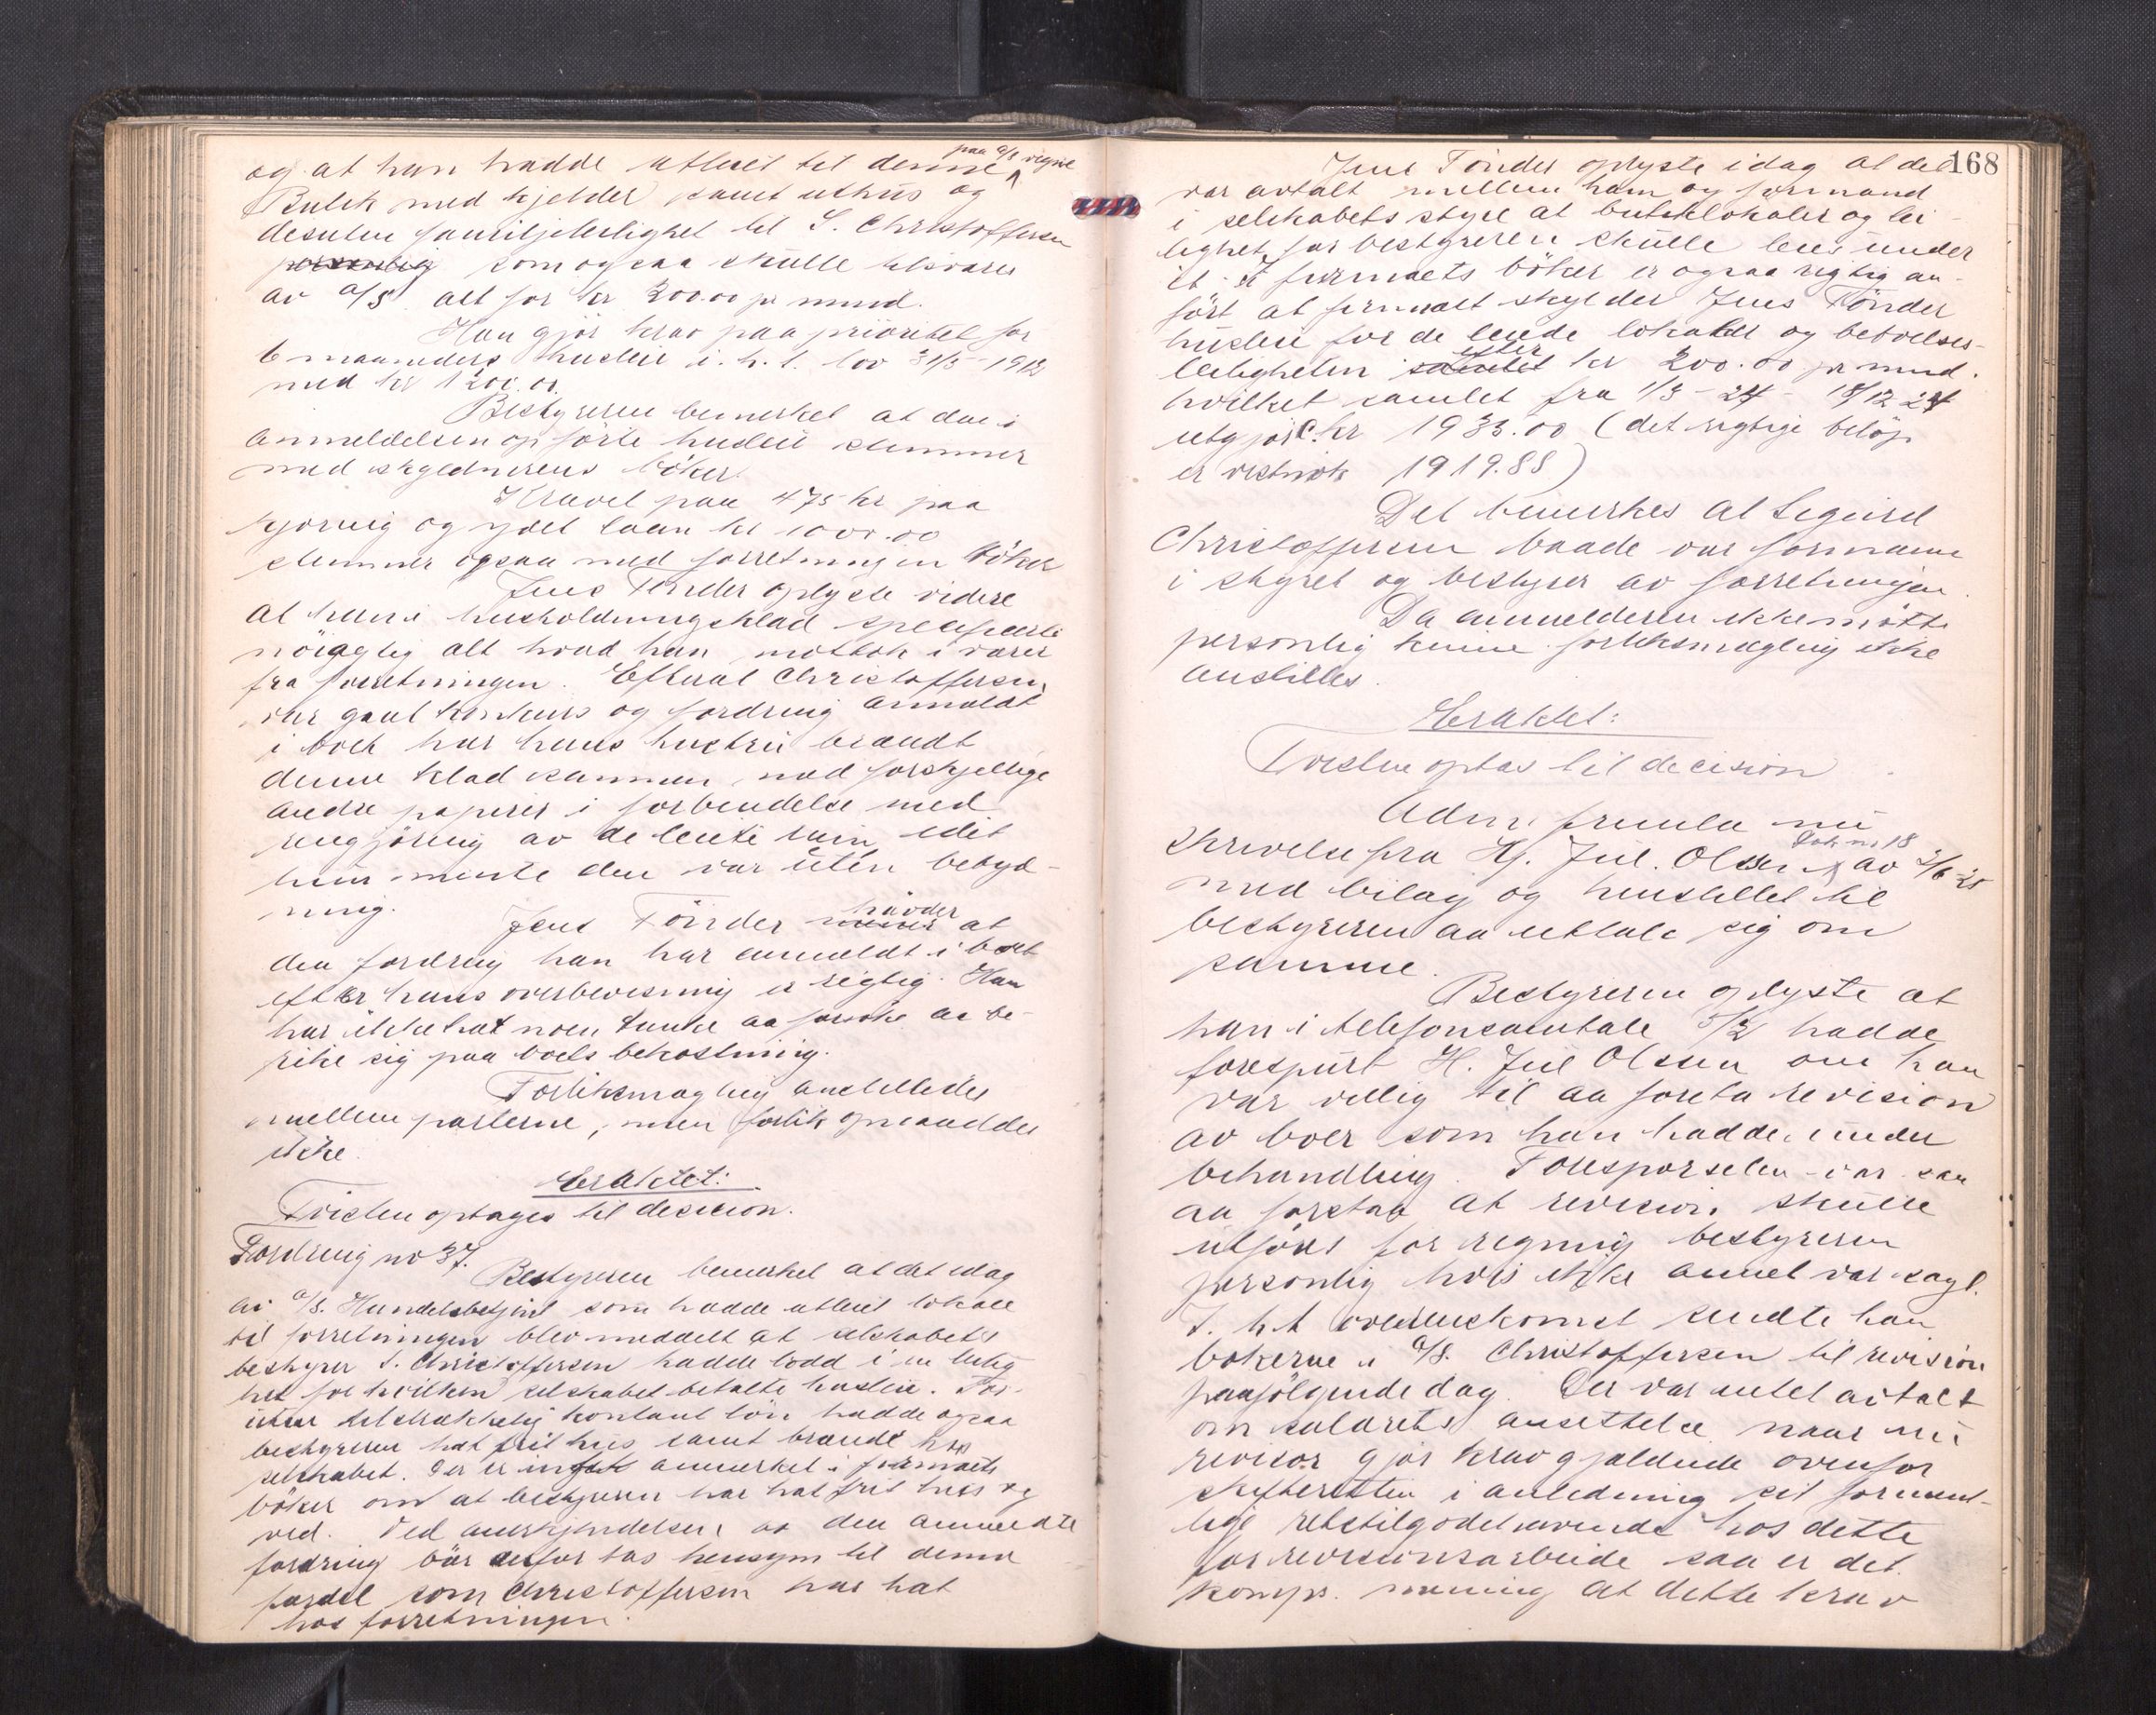 og at han hadde utleiet til denne paa a/s vegne
Butik med kjelder samt uthus og
desuten familjeleilighet til S. Christoffersen
personlig som ogsaa skulle tilsvares
av A/S alt for kr 200.00 pr mnd.
Han gjör krav paa prioritet for
6 maaneders husleie i. h. t. lov 31/5-1918
med kr 1200.00.
Bestyreren bemerket at den i
anmeldelsen opförte husleie stemmer
med skyldnerens böker.
Kravet paa 475 kr paa
og ydet laan kr 1000.00
stemmer ogsaa med forretningen böker
Jens Tönder oplyste videre
at han i husholdningsklad specificerte
nöiagtig alt hvad han mottok i varer
fra forretningen. Efterat Christoffersen
var gaat konkurs og fordring anmeldt
i boet har hans hustru brændt
denne klad sammen med forskjellige
andre papirer i forbindelse med
rengjöring av de leiete rum idet
hun mente den var uten betyd-
ning.
Jens Tönder mener hævder at
den fordring han har anmeldt i boet
efter hans overbevisning er rigtig. Han
har ikke hat noen tanke aa forsöke aa be-
rike sig paa boets bekostning.
Forliksmægling anstilledes
mellem parterne, men forlik opnaaddes
ikke.
Eraktet:
Tvisten optages til decision.
Fordring no 37.
Bestyreren bemerket at det idag
av A/S. Handelsbetjent som hadde utleiet lokale
til forretningen blev meddelt at selskabets
bestyrer S. Christoffersen hadde bodd i en leilig
het for hvilken selskabet betalte husleie. For-
uten tilstrækkelig kontant lön hadde ogsaa
bestyreren hat frit hus samt brænde hos
selskabet. Der er intet anmerket i firmaets
böker om at bestyreren har hat frit hus og
ved. Ved anerkjendelsen av den anmeldte
fordring bör derfor tas hensyn til denne
fordel som Christoffersen har hat
hos forretningen.
168
Jens Tönder oplyste idag at det
var avtalt mellem ham og formand
i selskabets styre at butiklokaler og lei-
lighet for bestyreren skulle leies under
et. I firmaets böker er ogsaa rigtig an-
fört at firmaet skylder Jens Tönder
husleie for de leiede lokaler og beboelses-
leiligheten samlet efter kr 200.00 pr mnd.
hvilket samlet fra 1/3-24 - 18/12 24
utgjör kr 1933.00 (det rigtige belöp
er vistnok 1919.88)
Det bemerkes at Sigurd
Christoffersen baade var formann
i styret og bestyrer av forretningen.
Da anmelderen ikke mötte
personlig kunne forliksmægling ikke
anstilles.
Eraktet:
Tvisten optas til decision
Adm. fremla nu
skrivelse fra Hj. Jul. Olsen Dok nr. 18 av 2/6-25
med bilag og henstillet til
bestyreren aa uttale sig om
samme.
Bestyreren oplyste at
han i telefonsamtale 5/2 hadde
forespurt H. Jul Olsen om han
var villig til aa foreta revision
av boer som han hadde under
behandling. Forespörselen var saa
aa forstaa at revision skulle
utföres for regning bestyreren
personlig hvis ikke annet var sagt.
I. h. t overenskomst sendte han
bökerne i A/S. Christoffersen til revision
paafölgende dag. Der var intet avtalt
om salarets ansettelse naar nu
revisor gjör krav gjældende ovenfor
skifteretten i anledning sit forment-
lige tilgodehavende hos dette
for revisionsarbeide saa er det
komps. mening at dette krav